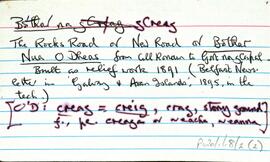 Bóthar na gCreag
The Rocks Road or New Road or Bóthar
Nua O Dheas from Cill Rónáin to Gort na gCapall.
Built as relief work 1891 (Belfast News-
letter in Galway & Aran Islands, 1895, in the
tech.)
[O'D: creag = creig, crag, stony ground
f., pl. creaga or